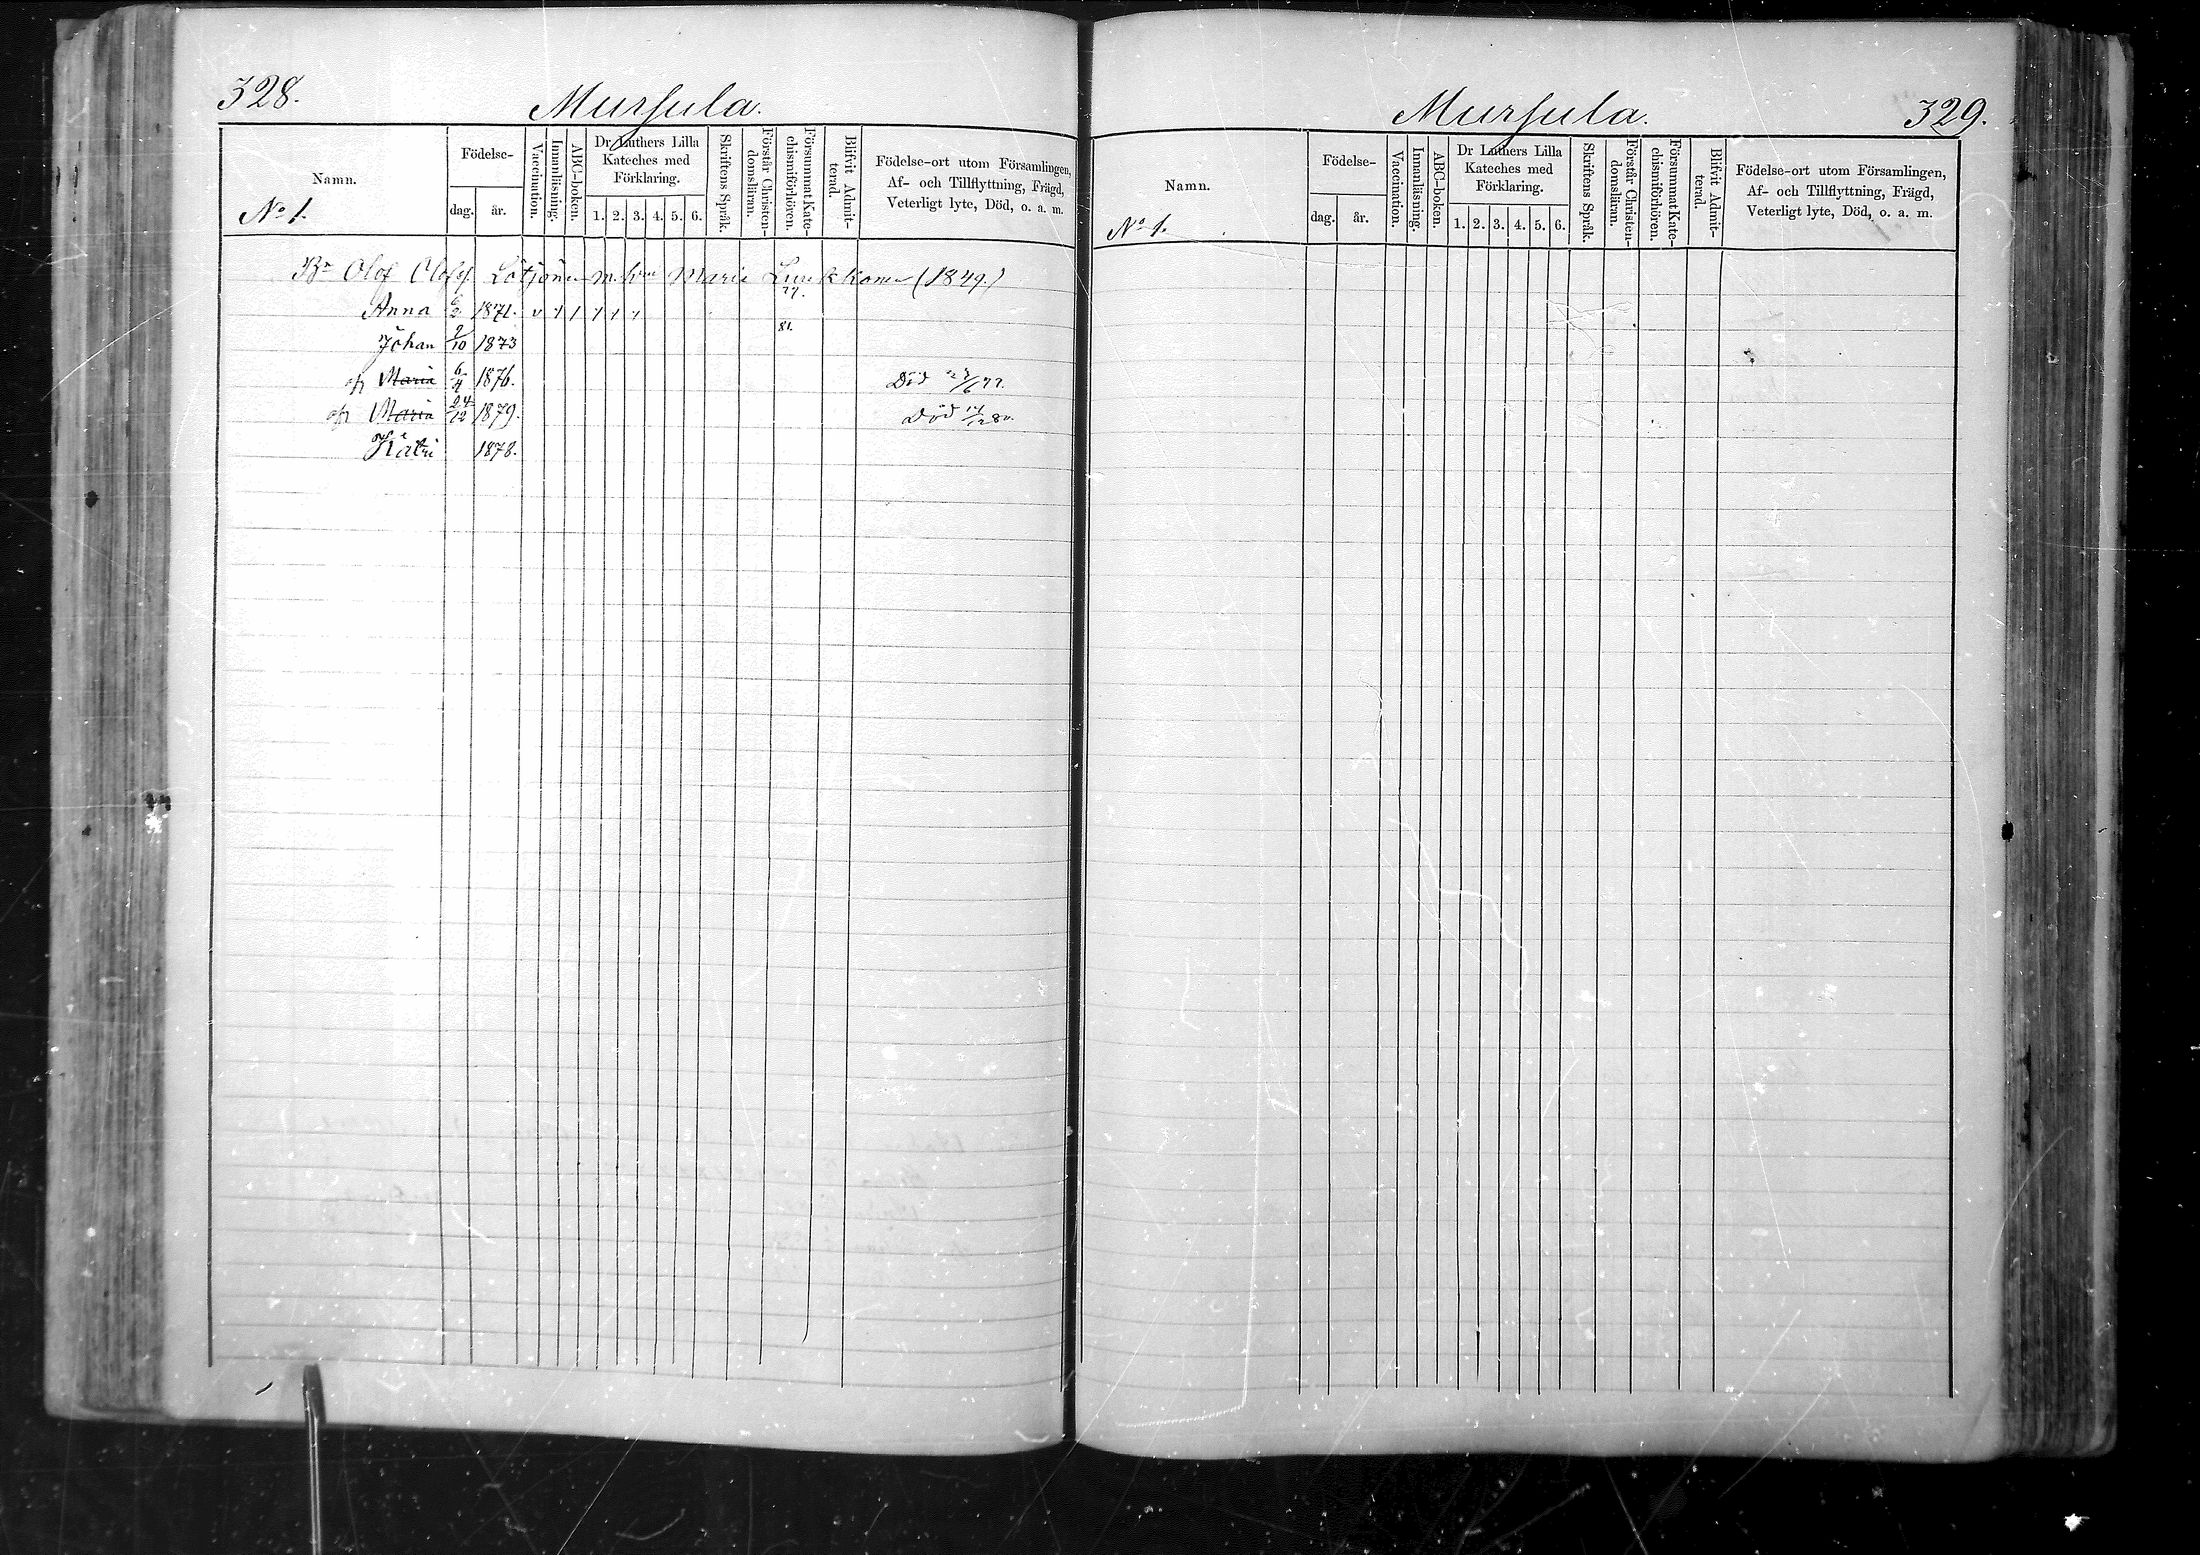 328.
Mursula.
Namn.
Födelse-
dag.
år.
Vaccination.
Innanläsning.
ABC-boken.
Dr Luthers Lilla
Kateches med
Förklaring.
1. 2. 3. 4. 5. 6.
Skriftens Språk.
Förstår Christen-
domsläran.
Försummat Kate-
chismiförhören.
Blifvit Admit-
terad.
Födelse-ort utom Församlingen,
Af- och Tillflyttning, Frägd,
Veterligt lyte, Död, o. a. m.
No 1.
Olof Olofs. Lötjönen m. hu Maria (1849.)
77.
Anna 6/2 1871. v 1 1 1 1 1
81.
Johan 2/10 1873
Maria 6/4 1876. Död 23/6 77.
Maria 24/12 1879. Död 14/12 80.
Kätri 1878.
Mursula.
329.
Namn.
Födelse-
dag.
år.
Vaccination.
Innanläsning.
ABC-boken.
Dr Luthers Lilla
Kateches med
Förklaring.
1. 2. 3. 4. 5. 6.
Skriftens Språk.
Förstår Christen-
domsläran.
Försummat Kate-
chismiförhören.
Blifvit Admit-
terad.
Födelse-ort utom Församlingen,
Af- och Tillflyttning, Frägd,
Veterligt lyte, Död, o. a. m.
No 1.